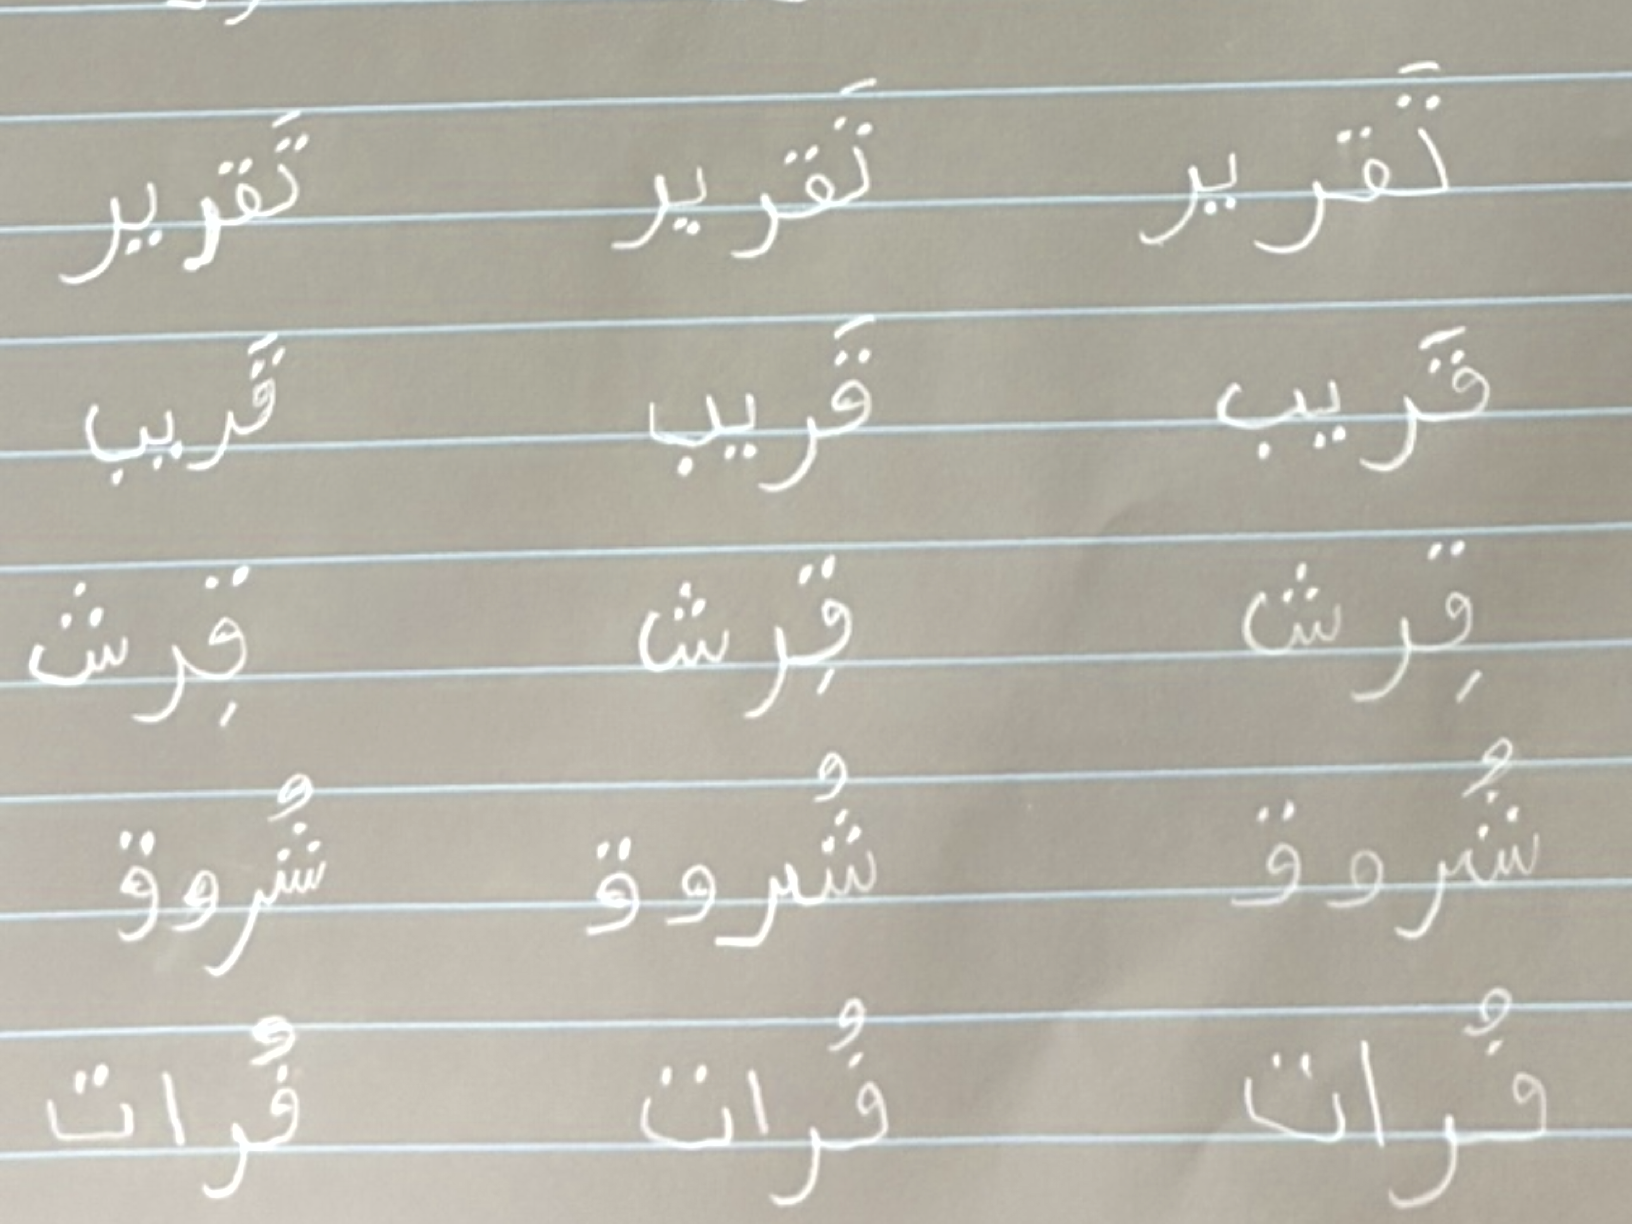 تَقرير تَقرير تَقرير
قَريب قَريب قَريب
قِرش قِرش قِرش
شُروق شُروق شُروق
فُرات فُرات فُرات